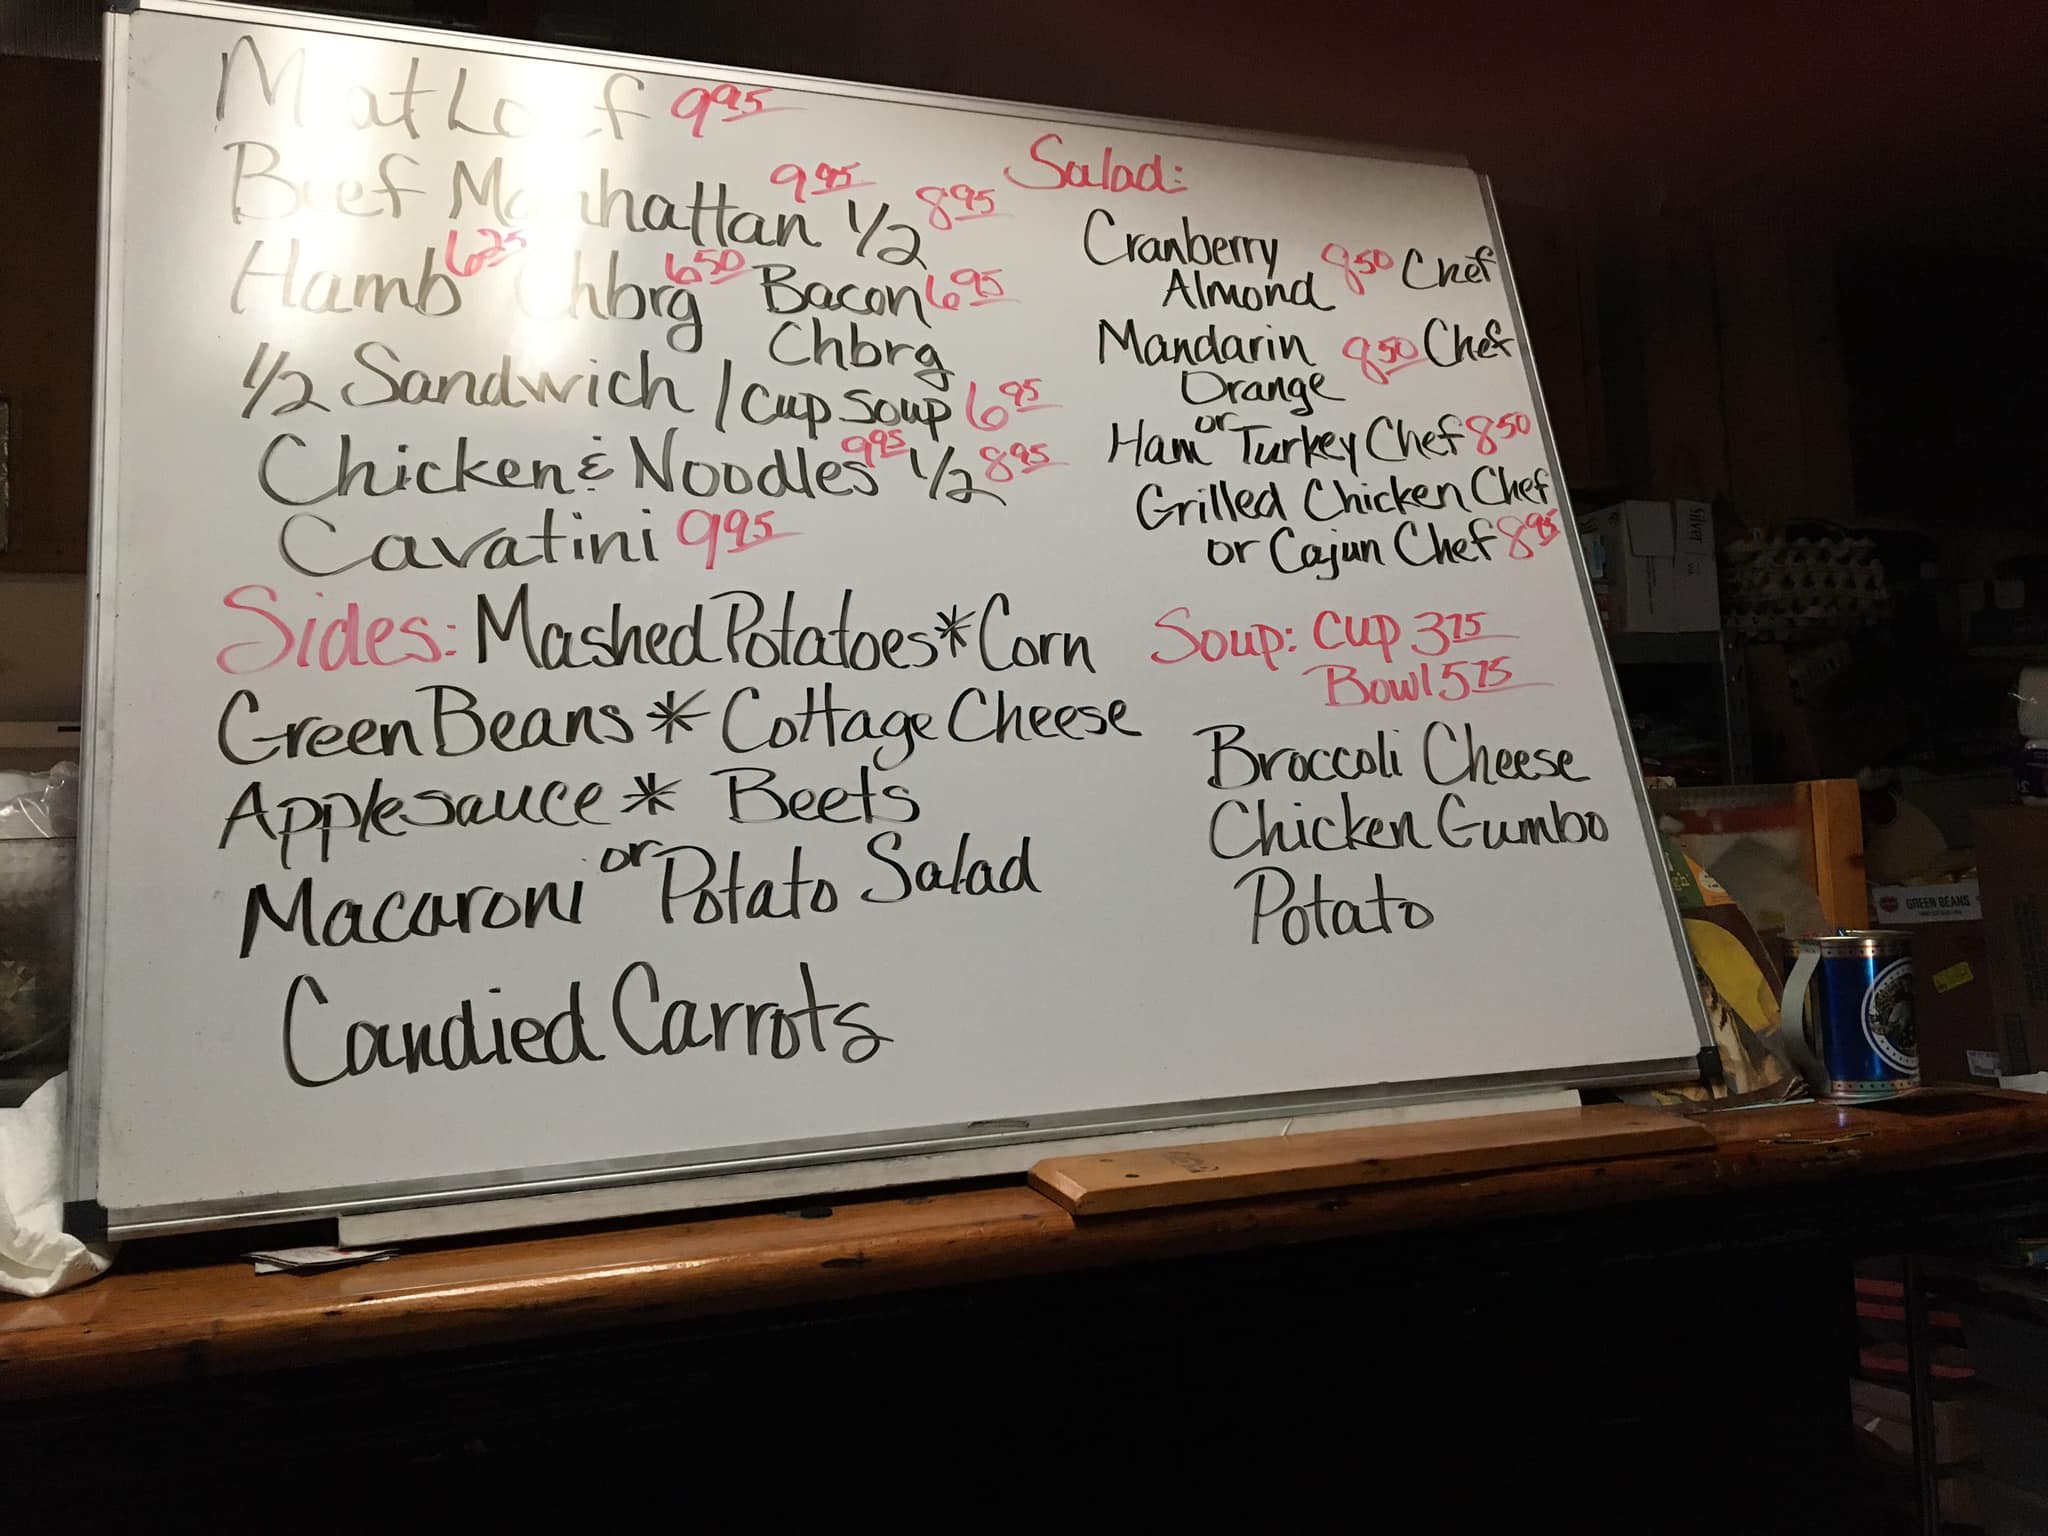 Meat Loaf 9.95
Beef Manhattan 9.95 1/2 8.95
Hamb 6.25 Chbrg 6.50 Bacon 6.95
Chbrg
1/2 Sandwich / cup soup 6.95
Chicken & Noodles 9.95 1/2 8.95
Cavatini 9.95
Sides: Mashed Potatoes * Corn
Green Beans * Cottage Cheese
Applesauce * Beets
Macaroni or Potato Salad
Candied Carrots
Salad:
Cranberry 8.50 Chef
Almond
Mandarin 8.50 Chef
Orange
Ham or Turkey Chef 8.50
Grilled Chicken Chef
or Cajun Chef 8.95
Soup: Cup 3.75
Bowl 5.75
Broccoli Cheese
Chicken Gumbo
Potato
Silver
GREEN BEANS